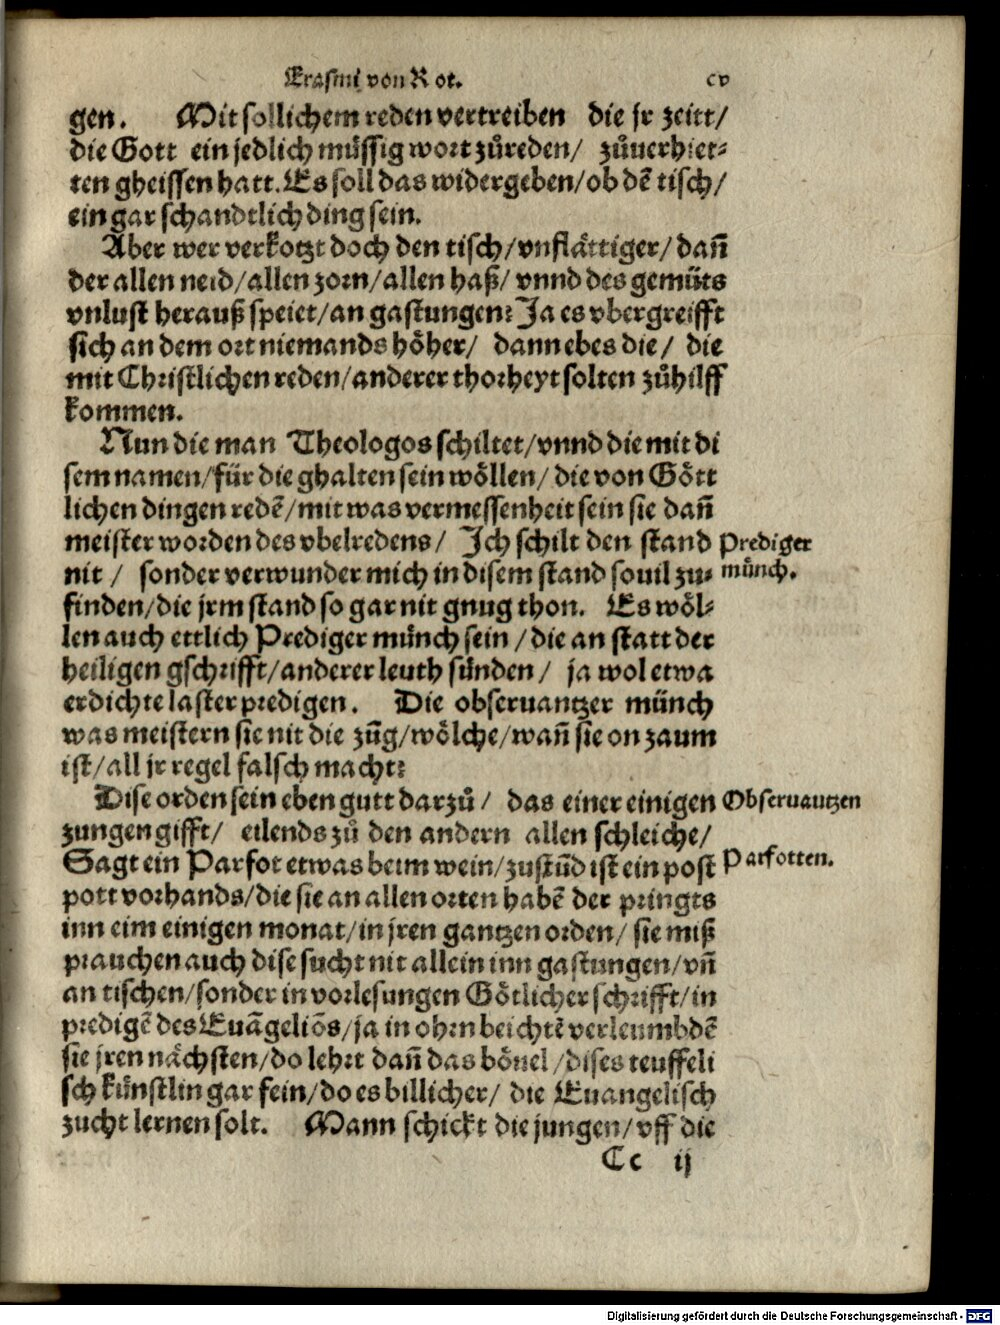 Erasmi von Rot. cv
gen. Mit sollichem reden vertreiben die jr zeitt/
die Gott ein jedlich müssig wort zůreden/ zůuerhiet⸗
ten gheissen hatt. Es soll das widergeben/ob dē tisch/
ein gar schandtlich ding sein.
Aber wer verkotzt doch den tisch/vnflättiger/dañ
der allen neid/allen zorn/allen haß/vnnd des gemüts
vnlust herauß speiet/an gastungen? Ja es vbergreifft
sich an dem ort niemands höher/ dann ebes die/ die
mit Christlichen reden/anderer thorheyt solten zůhilff
kommen.
Nun die man Theologos schiltet/vnnd die mit di
sem namen/für die ghalten sein wöllen/ die von Gött
lichen dingen redē/mit was vermessenheit sein sie dañ
meister worden des vbelredens/ Ich schilt den stand
nit/ sonder verwunder mich in disem stand souil zu⸗
finden/die jrm stand so gar nit gnug thon. Es wöl⸗
len auch ettlich Prediger münch sein/die an statt der
heiligen gschrifft/anderer leuth sünden/ ja wol etwa
erdichte laster predigen. Die obseruantzer münch
was meistern sie nit die zūg/wölche/wañ sie on zaum
ist/all jr regel falsch macht?
Dise orden sein eben gutt darzů/ das einer einigen
zungen gifft/ eilends zů den andern allen schleiche/
Sagt ein Parfot etwas beim wein/zustūd ist ein post
pott vorhands/die sie an allen orten habē der pringts
inn eim einigen monat/in jren gantzen orden/ sie miß
prauchen auch dise sucht nit allein inn gastungen/vñ
an tischen/sonder in vorlesungen Götlicher schrifft/in
predigē des Euāgeliōs/ja in ohrn beichtē verleumbdē
sie jren nächsten/do lehrt dañ das böuel/dises teuffeli
sch künstlin gar fein/do es billicher/ die Euangelisch
zucht lernen solt. Mann schickt die jungen/vff die
Cc ij
Prediger
münch.
Obseruantzen
Parfotten.
Digitalisierung gefördert durch die Deutsche Forschungsgemeinschaft - DFG